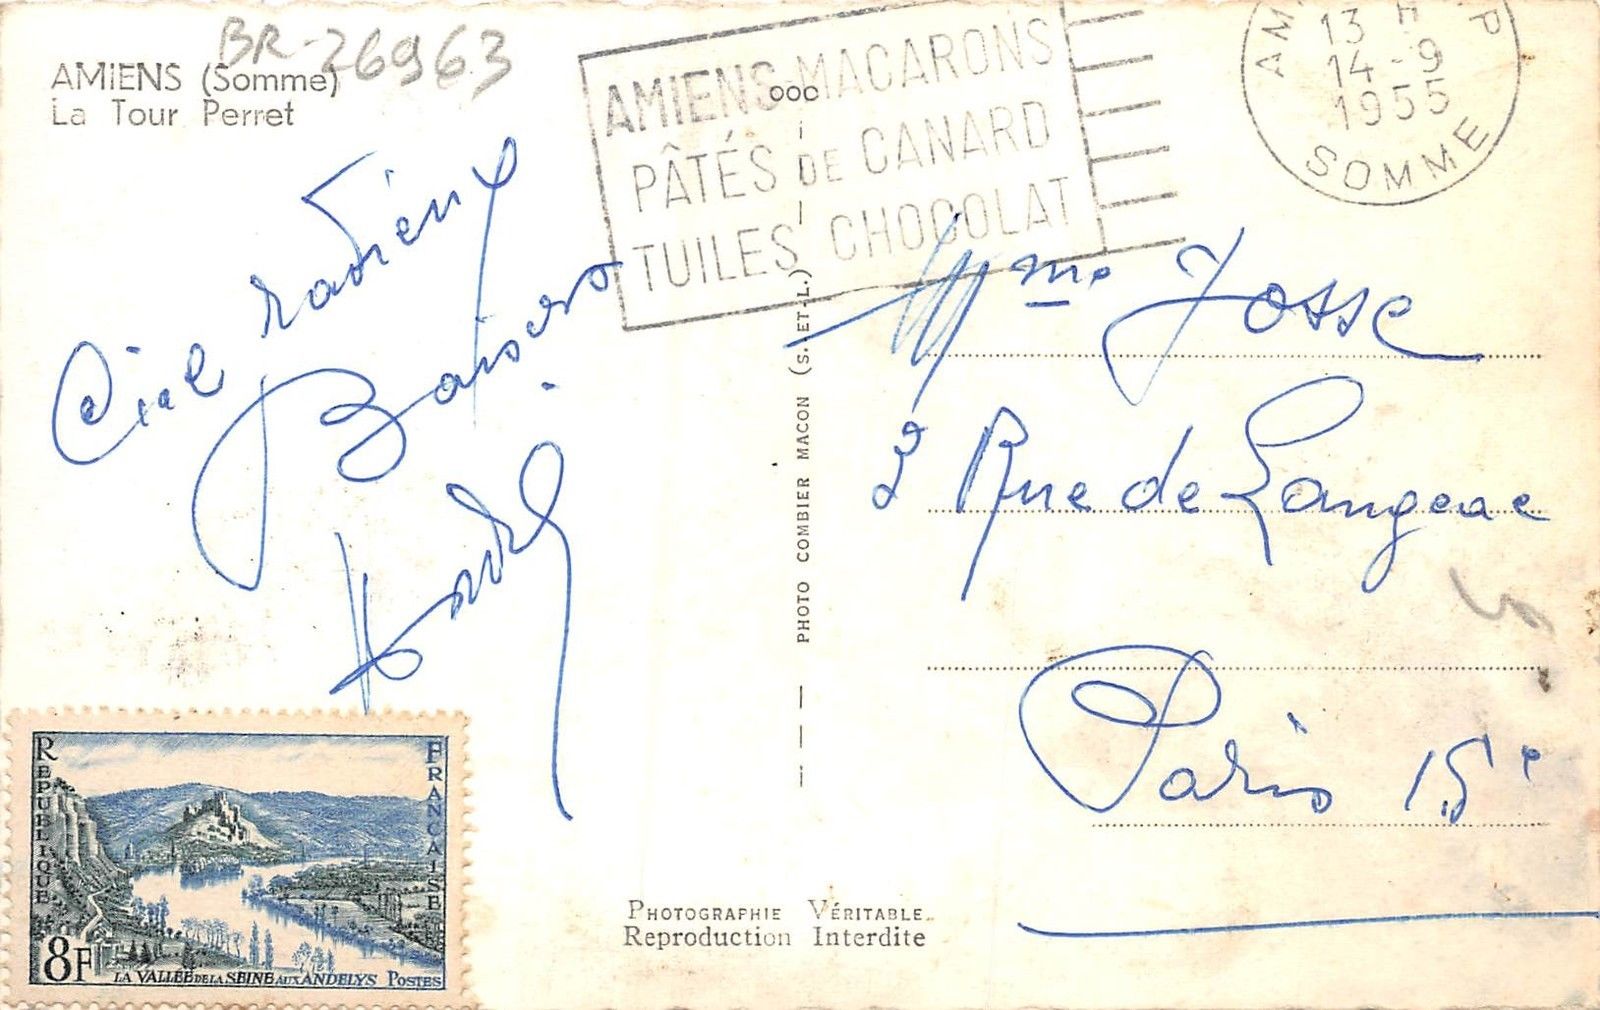 BR-26963
AMIENS (Somme)
La Tour Perret
AMIENS MACARONS
PÂTÉS DE CANARD
TUILES CHOCOLAT
13 H
14-9
1955
SOMME
Ciel radieux
Baisers
Mme Josse
2 Rue de Langeac
Paris 15e
PHOTO COMBIER MACON (S. ET L.)
RÉPUBLIQUE FRANÇAISE
8F
LA VALLÉE DE LA SEINE AUX ANDELYS POSTES
PHOTOGRAPHIE VÉRITABLE
Reproduction Interdite